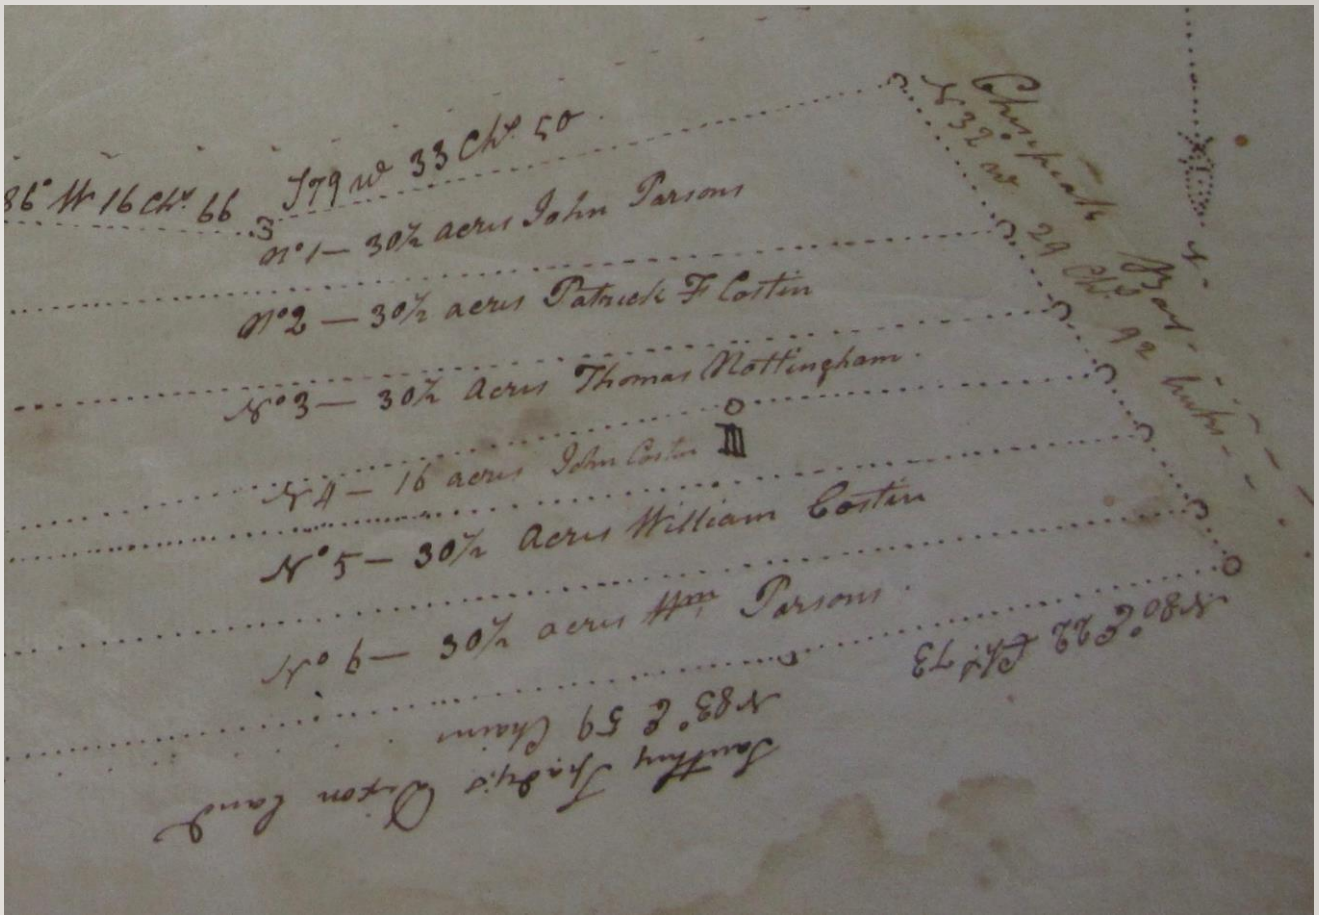 86° W 16 Chs. 66
S79 W 33 Chs 50
N° 1 — 30½ acres John Parsons
N° 2 — 30½ acres Patrick F Costin
N° 3 — 30½ Acres Thomas Nottingham
N 4 — 16 acres John Costin
N° 5 — 30½ Acres William Costin
N° 6 — 30½ acres Wm Parsons
Chesepeak Bay
N 32° W 29 Chs 92 links
N
N 80° E 22 Chs 73
N 83° E 59 Chains
Southy Spady's Dixon land